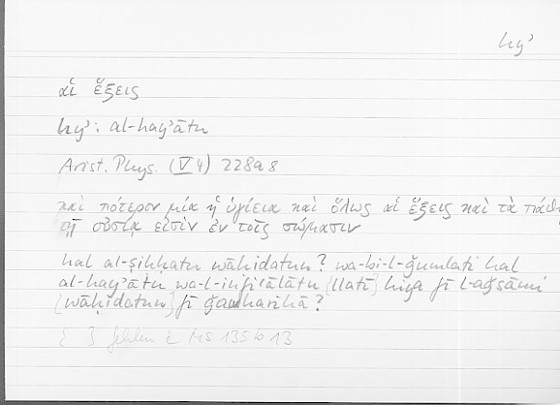 hyʾ
αἱ ἕξεις
hyʾ: al-hayʾātu
Arist. Phys. (V 4) 228a8
καὶ πότερον μία ἡ ὑγίεια καὶ ὅλως αἱ ἕξεις καὶ τὰ πάθη
τῇ οὐσίᾳ εἰσὶν ἐν τοῖς σώμασιν
hal al-ṣiḥḥatu wāḥidatun? wa-bi-l-ǧumlati hal
al-hayʾātu wa-l-infiʿālātu {llatī} hiya fī l-aǧsāmi
{wāḥidatun} fī ǧauharihā?
{ } fehlen MS 135b13